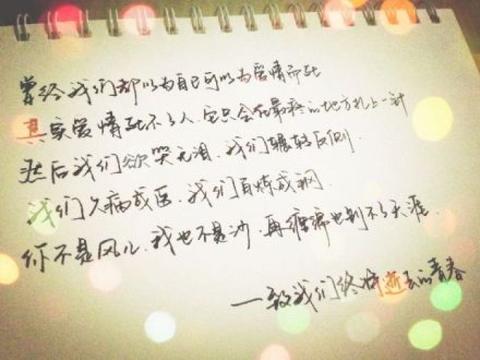 曾经我们都以为自己可以为爱情而死
其实爱情死不了人，它只会在最疼的地方扎上一针
然后我们欲哭无泪，我们辗转反侧
我们久病成医，我们百炼成钢
你不是风儿，我也不是沙，再缠绵也到不了天涯
——致我们终将逝去的青春